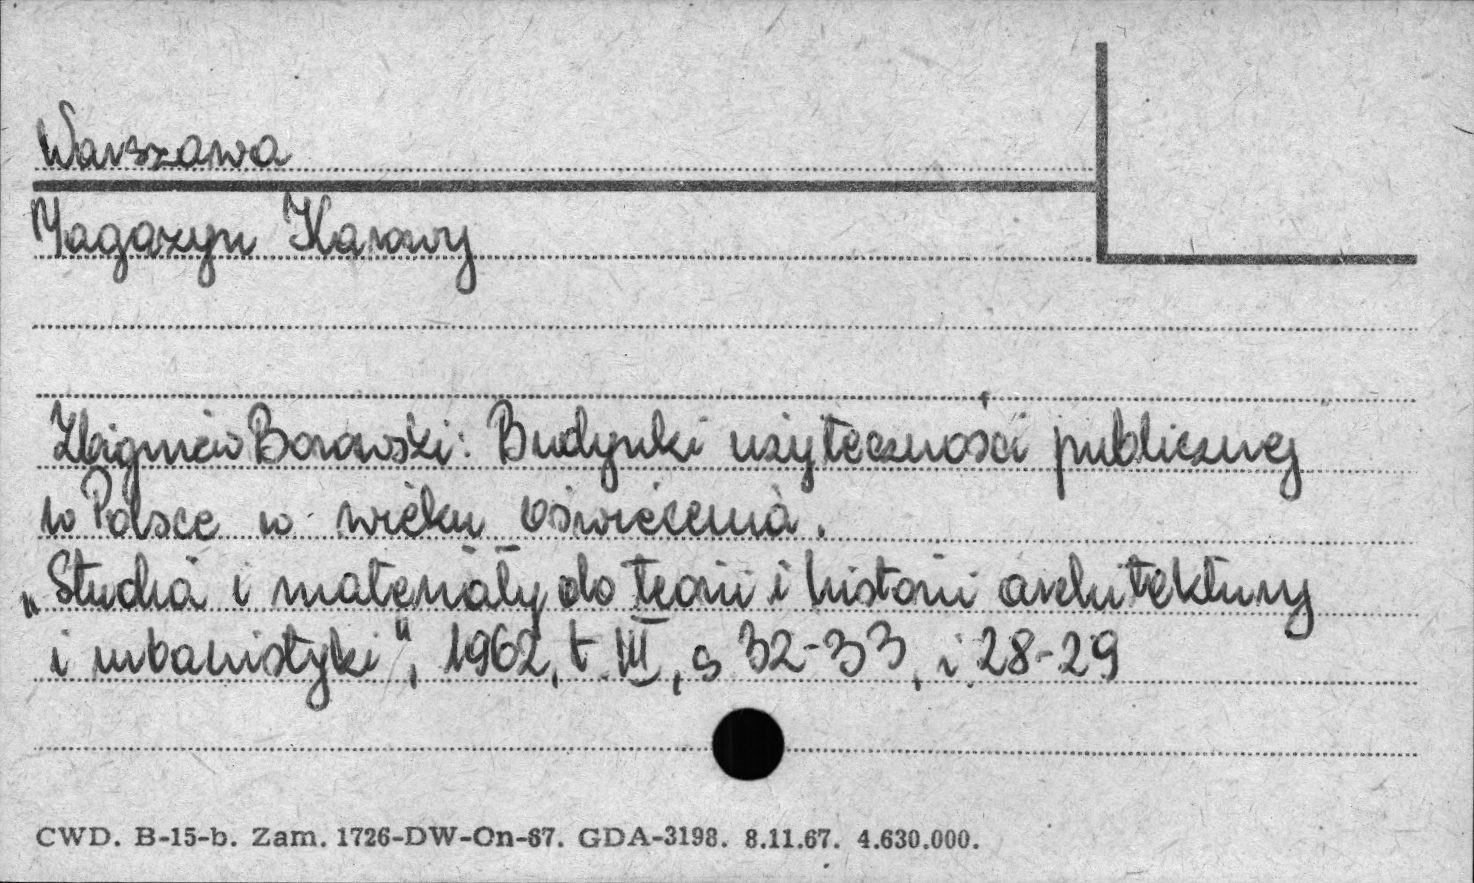 Warszawa
Magazyn Karowy
Zbigniew Borawski: Budynki użyteczności publicznej
w Polsce w wieku Oświecenia.
„Studia i materiały do teorii i historii architektury
i urbanistyki", 1962, t. III, s 32-33, i 28-29
CWD. B-15-b. Zam. 1726-DW-On-67. GDA-3198. 8.11.67. 4.630.000.